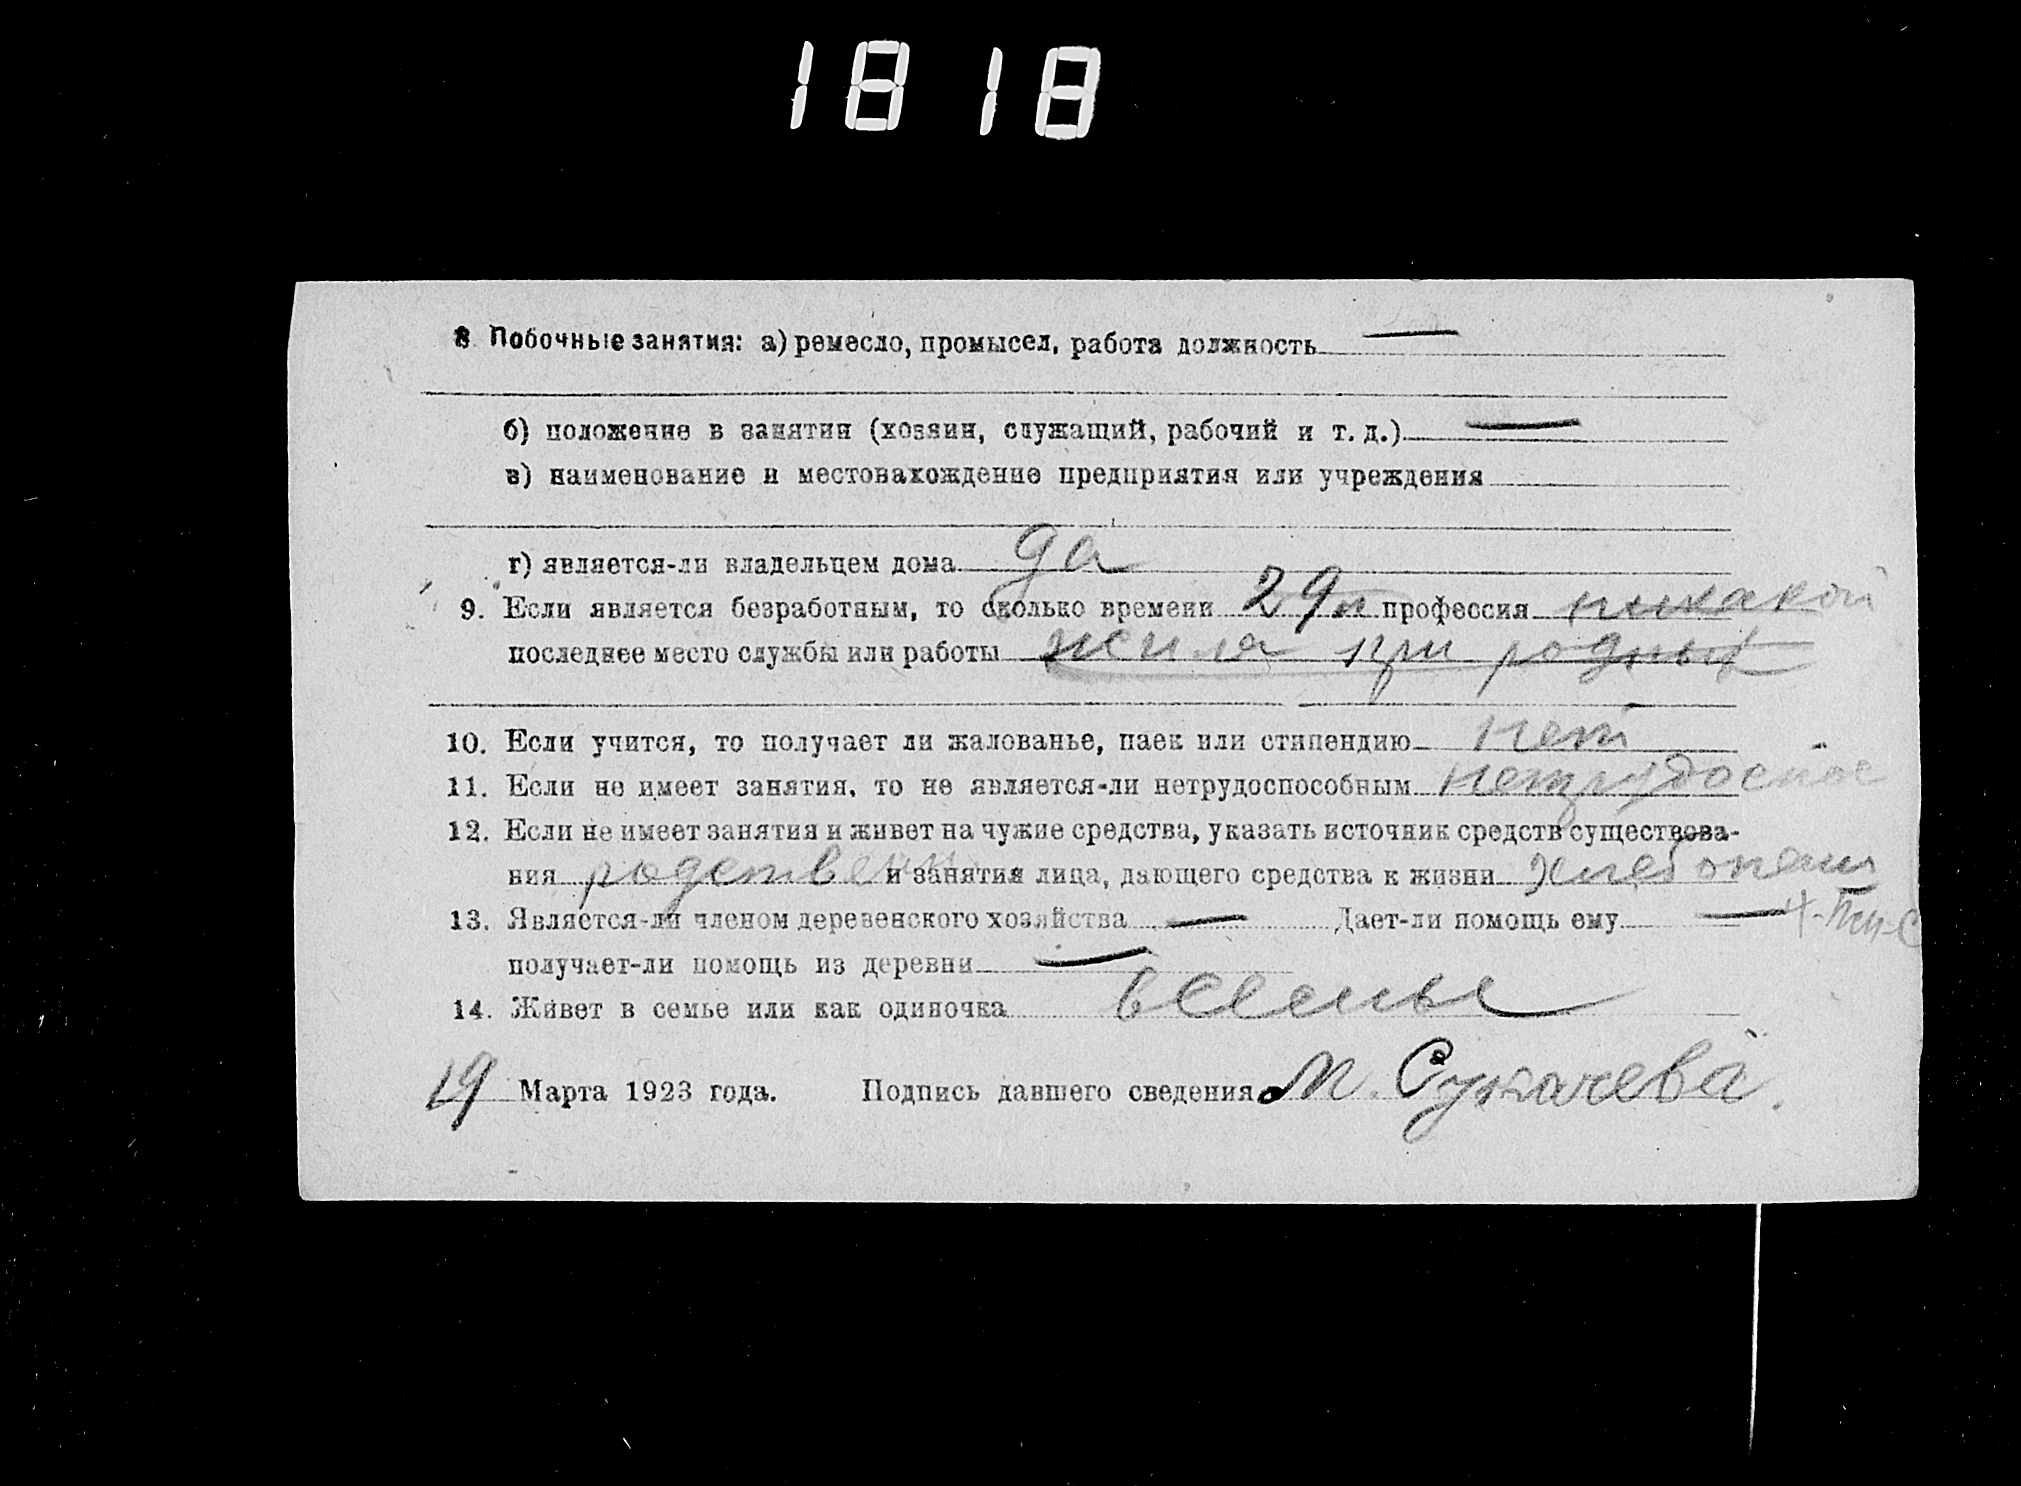 1818
8 Побочные занятия: а) ремесло, промысел, работа должность —
б) положение в занятии (хозяин, служащий, рабочий и т. д.) —
в) наименование и местонахождение предприятия или учреждения
г) является-ли владельцем дома да
9. Если является безработным, то сколько времени 29 л профессия никакой
последнее место службы или работы жила при родных
10. Если учится, то получает ли жалованье, паек или стипендию нет
11. Если не имеет занятия, то не является-ли нетрудоспособным нетрудоспос
12. Если не имеет занятия и живет на чужие средства, указать источник средств существова-
ния родствен и занятия лица, дающего средства к жизни хлебопаш
13. Является-ли членом деревенского хозяйства — Дает-ли помощь ему —
получает-ли помощь из деревни —
14. Живет в семье или как одиночка всемье
19 Марта 1923 года. Подпись давшего сведения М. Сукачева.